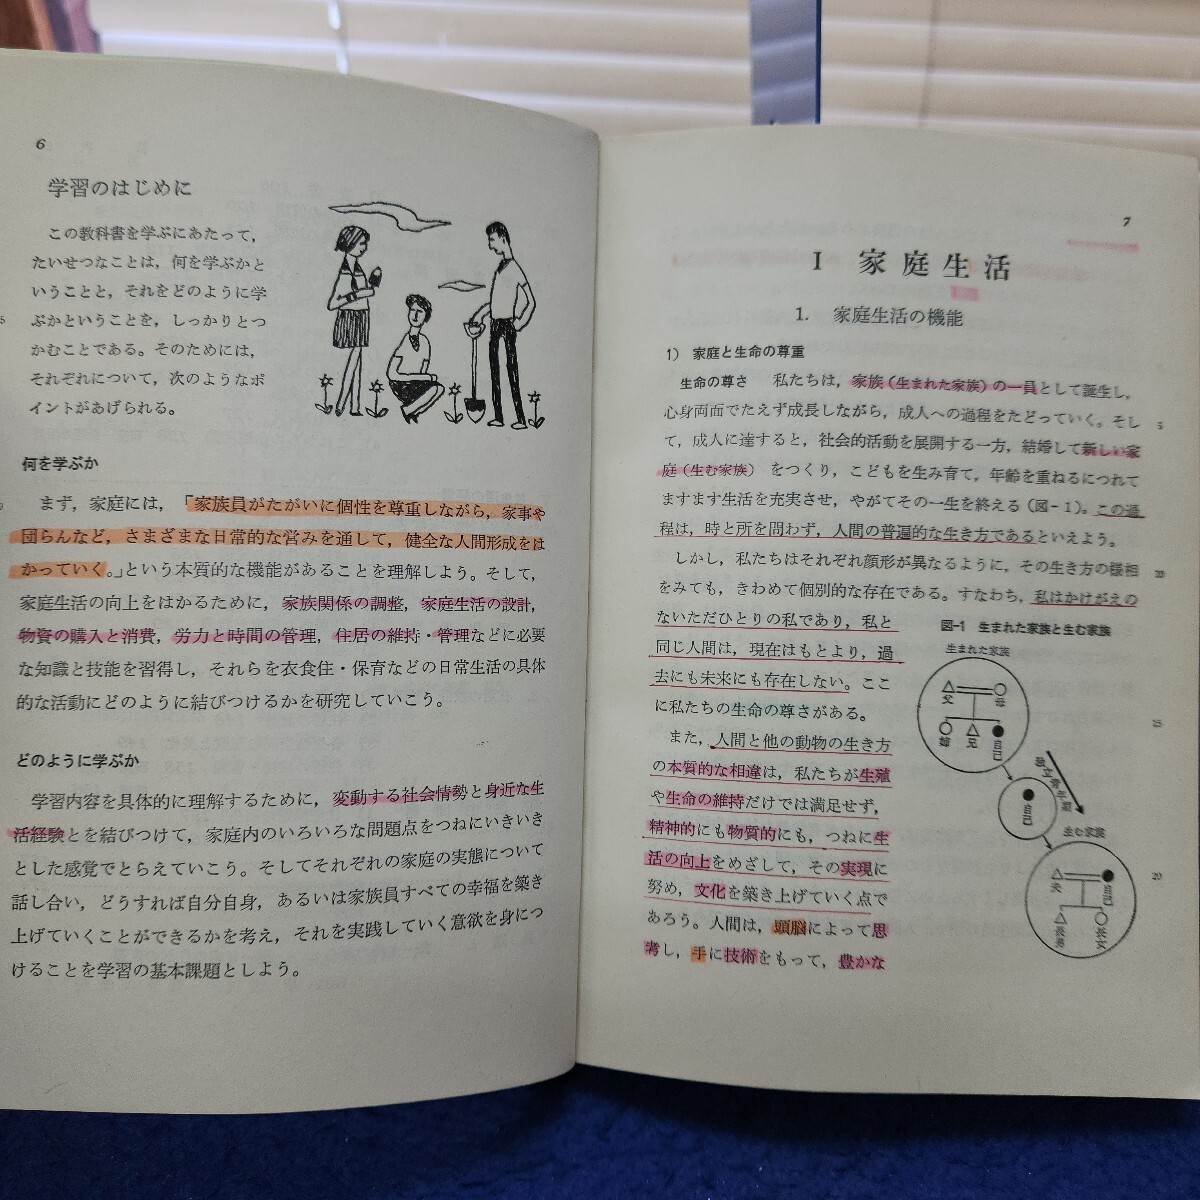 6
学習のはじめに
この教科書を学ぶにあたって，
たいせつなことは，何を学ぶかと
いうことと，それをどのように学
5
ぶかということを，しっかりとつ
かむことである。そのためには，
それぞれについて，次のようなポ
イントがあげられる。
何を学ぶか
まず，家庭には，「家族員がたがいに個性を尊重しながら，家事や
団らんなど，さまざまな日常的な営みを通して，健全な人間形成をは
かっていく。」という本質的な機能があることを理解しよう。そして，
家庭生活の向上をはかるために，家族関係の調整，家庭生活の設計，
物資の購入と消費，労力と時間の管理，住居の維持・管理などに必要
な知識と技能を習得し，それらを衣食住・保育などの日常生活の具体
的な活動にどのように結びつけるかを研究していこう。
どのように学ぶか
学習内容を具体的に理解するために，変動する社会情勢と身近な生
活経験とを結びつけて，家庭内のいろいろな問題点をつねにいきいき
とした感覚でとらえていこう。そしてそれぞれの家庭の実態について
話し合い，どうすれば自分自身，あるいは家族員すべての幸福を築き
上げていくことができるかを考え，それを実践していく意欲を身につ
けることを学習の基本課題としよう。
7
I 家庭生活
1. 家庭生活の機能
1） 家庭と生命の尊重
生命の尊さ 私たちは，家族（生まれた家族）の一員として誕生し，
心身両面でたえず成長しながら，成人への過程をたどっていく。そし
5
て，成人に達すると，社会的活動を展開する一方，結婚して新しい家
庭（生む家族）をつくり，こどもを生み育て，年齢を重ねるにつれて
ますます生活を充実させ，やがてその一生を終える（図-1）。この過
程は，時と所を問わず，人間の普遍的な生き方であるといえよう。
しかし，私たちはそれぞれ顔形が異なるように，その生き方の様相
をみても，きわめて個別的な存在である。すなわち，私はかけがえの
ないただひとりの私であり，私と
同じ人間は，現在はもとより，過
去にも未来にも存在しない。ここ
に私たちの生命の尊さがある。
また，人間と他の動物の生き方
の本質的な相違は，私たちが生殖
や生命の維持だけでは満足せず，
精神的にも物質的にも，つねに生
活の向上をめざして，その実現に
努め，文化を築き上げていく点で
あろう。人間は，頭脳によって思
考し，手に技術をもって，豊かな
図-1 生まれた家族と生む家族
生まれた家族
父
母
姉
兄
自己
独立青年期
自己
生む家族
夫
自己
長男
長女
20